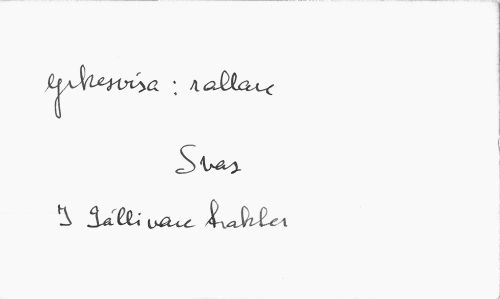 yrkesvisa : rallare
Svar
I Gällivare trakter